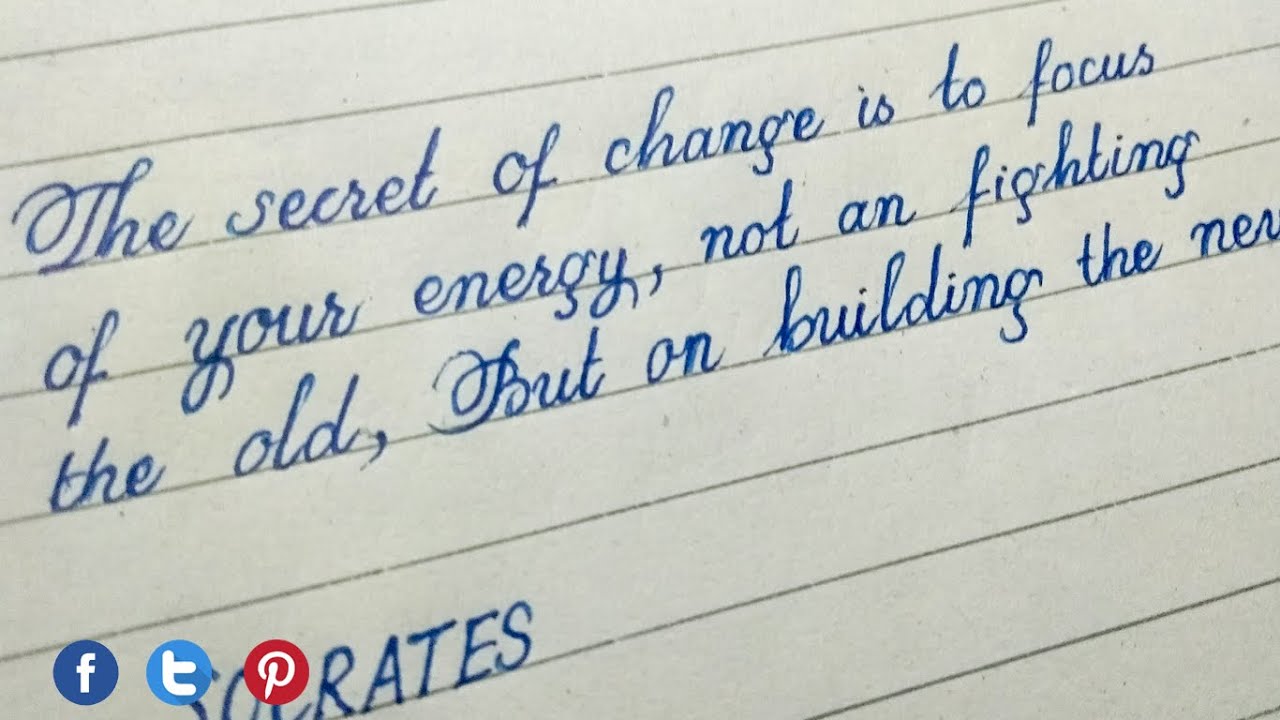 The secret of change is to focus
of your energy, not an fighting
the old, But on building the new
SOCRATES